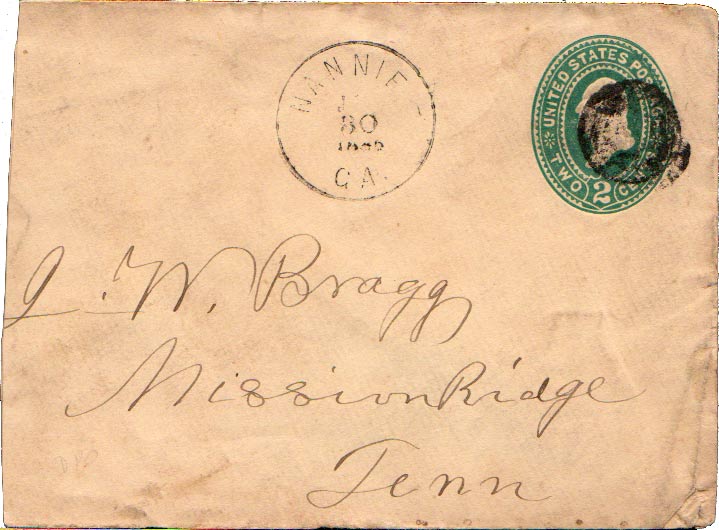 NANNIE
30
GA.
UNITED STATES POS
TWO 2 CE
J. W. Bragg
Mission Ridge
Tenn